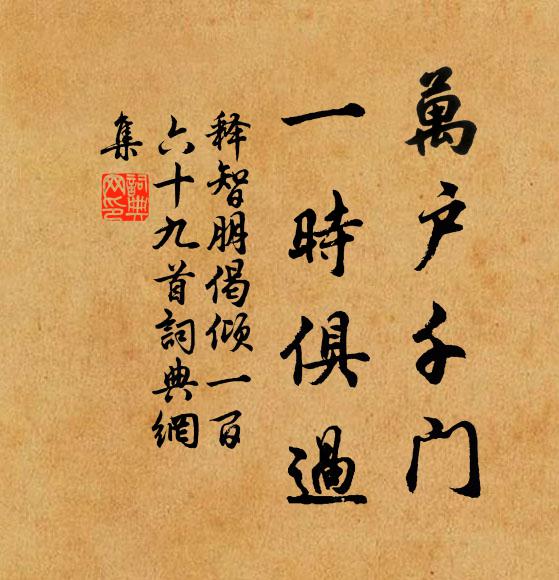 萬户千门
一時俱過
释智朋偈倾一百
六十九首詞典網
集
詞典网印